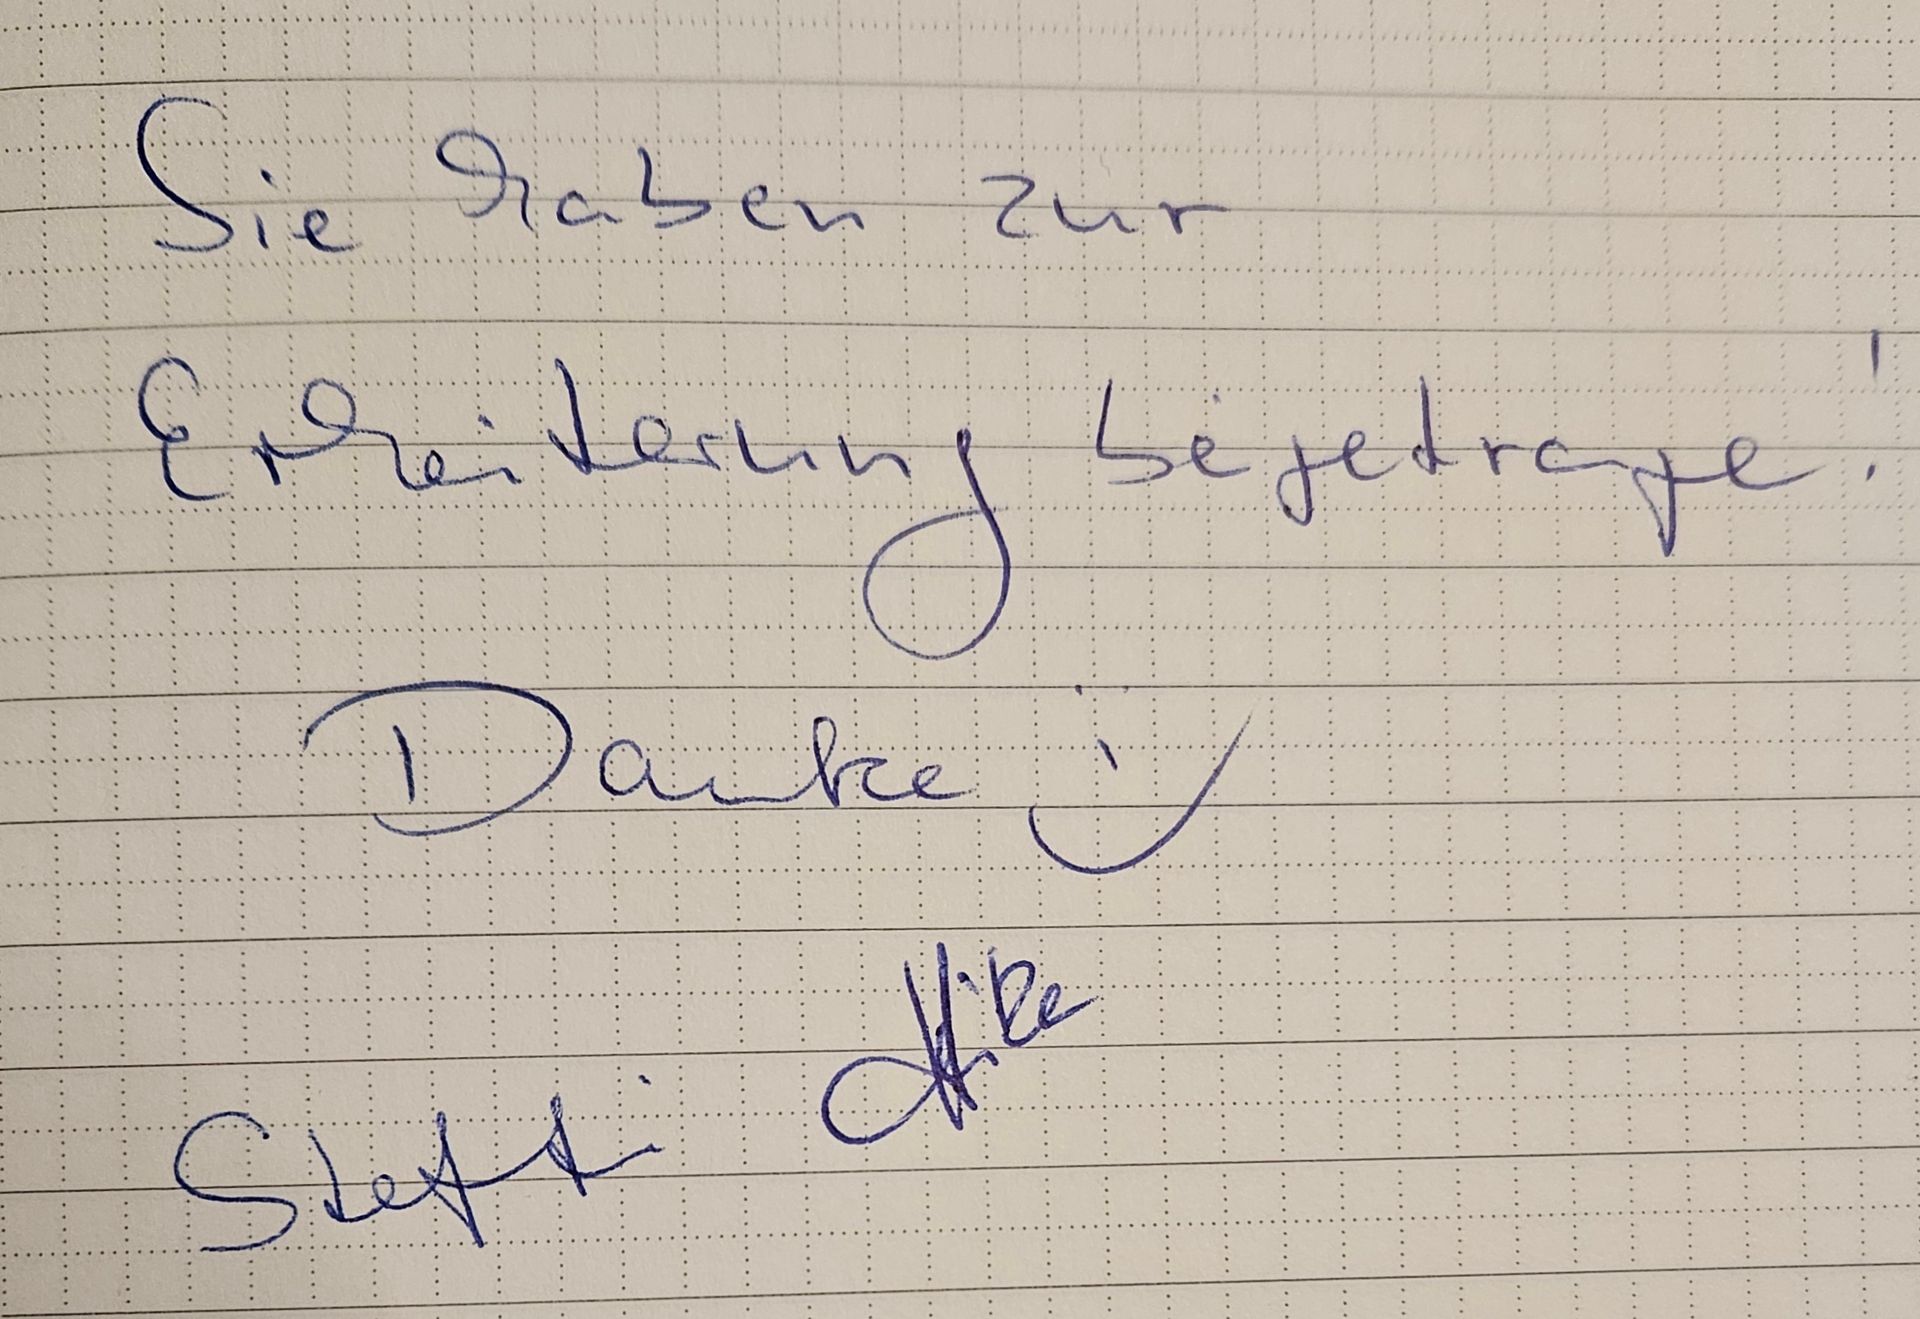 Sie haben zur
Erheiterung beigetrage!
Danke
Steffi